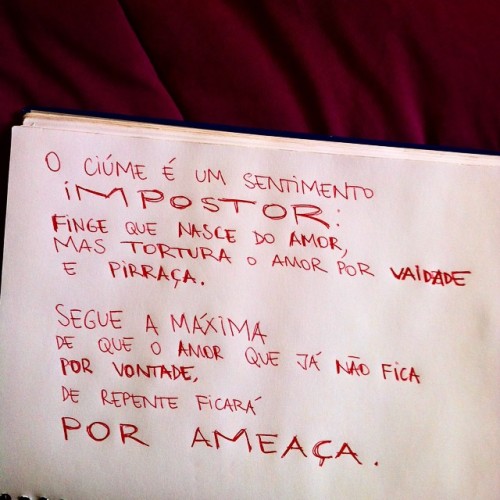 O CIÚME É UM SENTIMENTO
IMPOSTOR:
FINGE QUE NASCE DO AMOR,
MAS TORTURA O AMOR POR VAIDADE
E PIRRAÇA.
SEGUE A MÁXIMA
DE QUE O AMOR QUE JÁ NÃO FICA
POR VONTADE,
DE REPENTE FICARÁ
POR AMEAÇA.